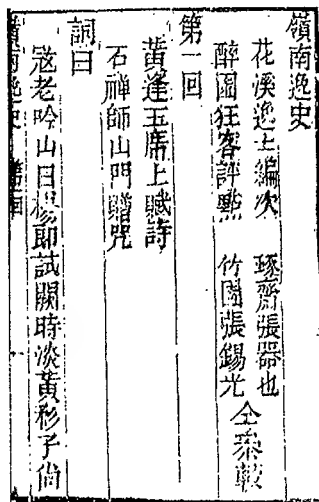 嶺南逸史
花溪逸士編次　琢齋張器也
醉園狂客評點　竹園張錫光　仝叅較
第一回
黃逢玉席上賦詩
石禪師山門贈咒
詞曰
寇老吟山日楊郎試闕時淡黃衫子尙
嶺南逸史　第一囘　一